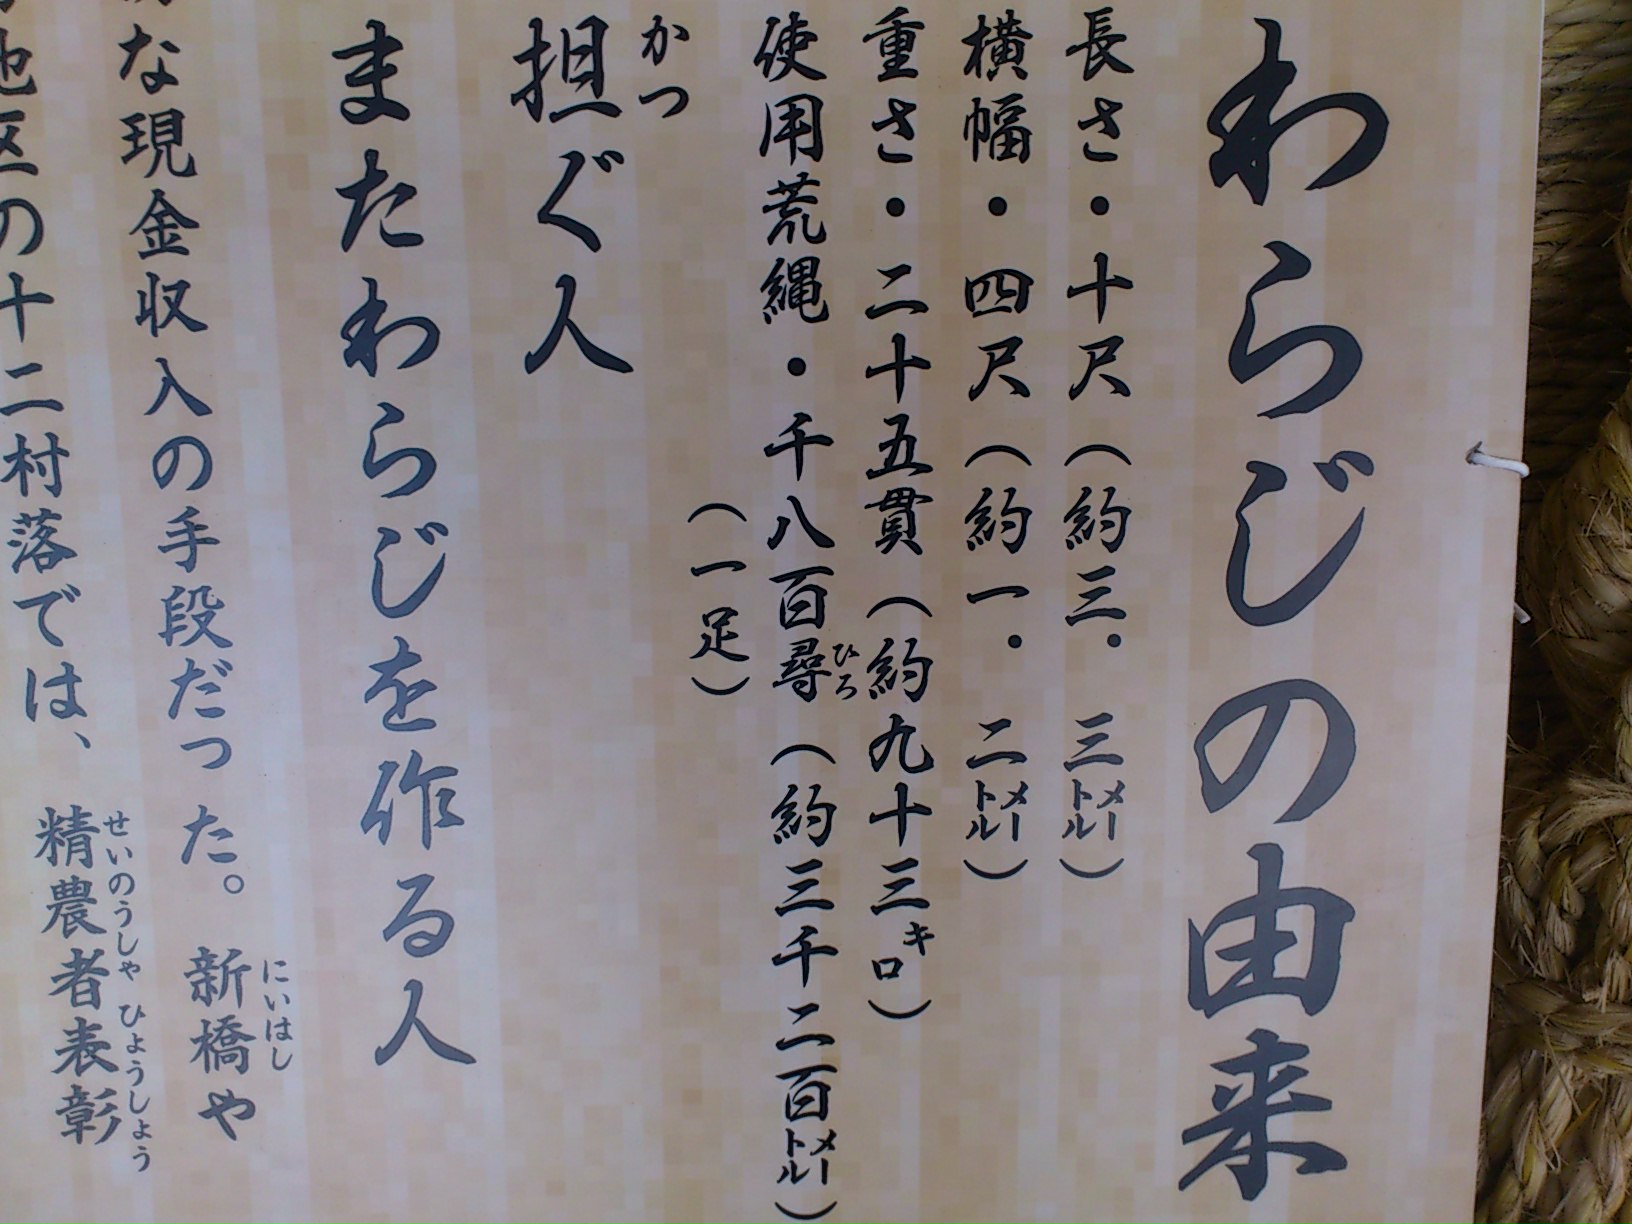 わらじの由来
長さ・十尺（約三・三メートル）
横幅・四尺（約一・二メートル）
重さ・二十五貫（約九十三キロ）
使用荒縄・千八百尋（約三千二百メートル）
ひろ
（一足）
かつ
担ぐ人
またわらじを作る人
な現金収入の手段だった。新橋や
にいはし
地区の十二村落では、精農者表彰
せいのうしゃひょうしょう